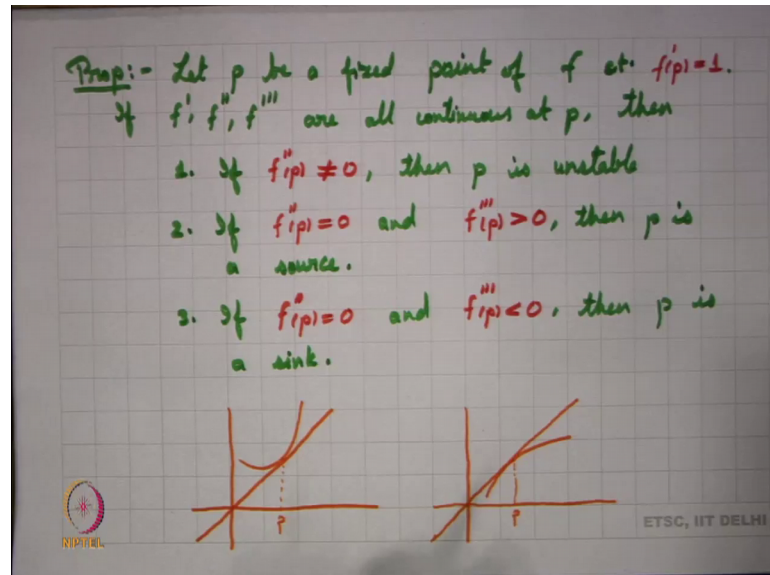 Prop:- Let p be a fixed point of f st. f'(p)=1.
If f', f'', f''' are all continuous at p, then
1. If f''(p) ≠ 0, then p is unstable
2. If f''(p) = 0 and f'''(p) > 0, then p is
a source.
3. If f''(p) = 0 and f'''(p) < 0, then p is
a sink.
p p
NPTEL
ETSC, IIT DELHI